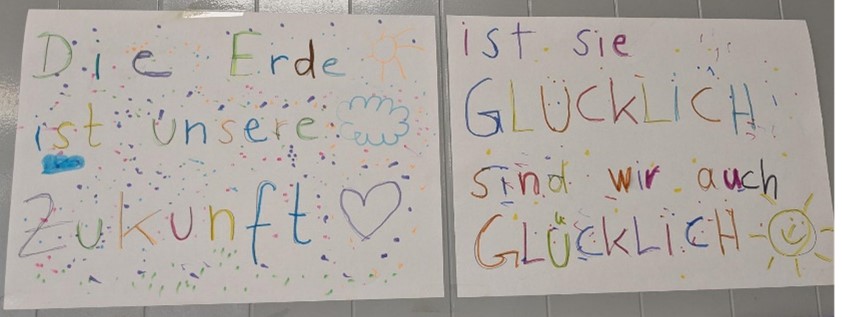 Die Erde
ist unsere
Zukunft
ist sie
GLÜCKLICH
sind wir auch
GLÜCKLICH